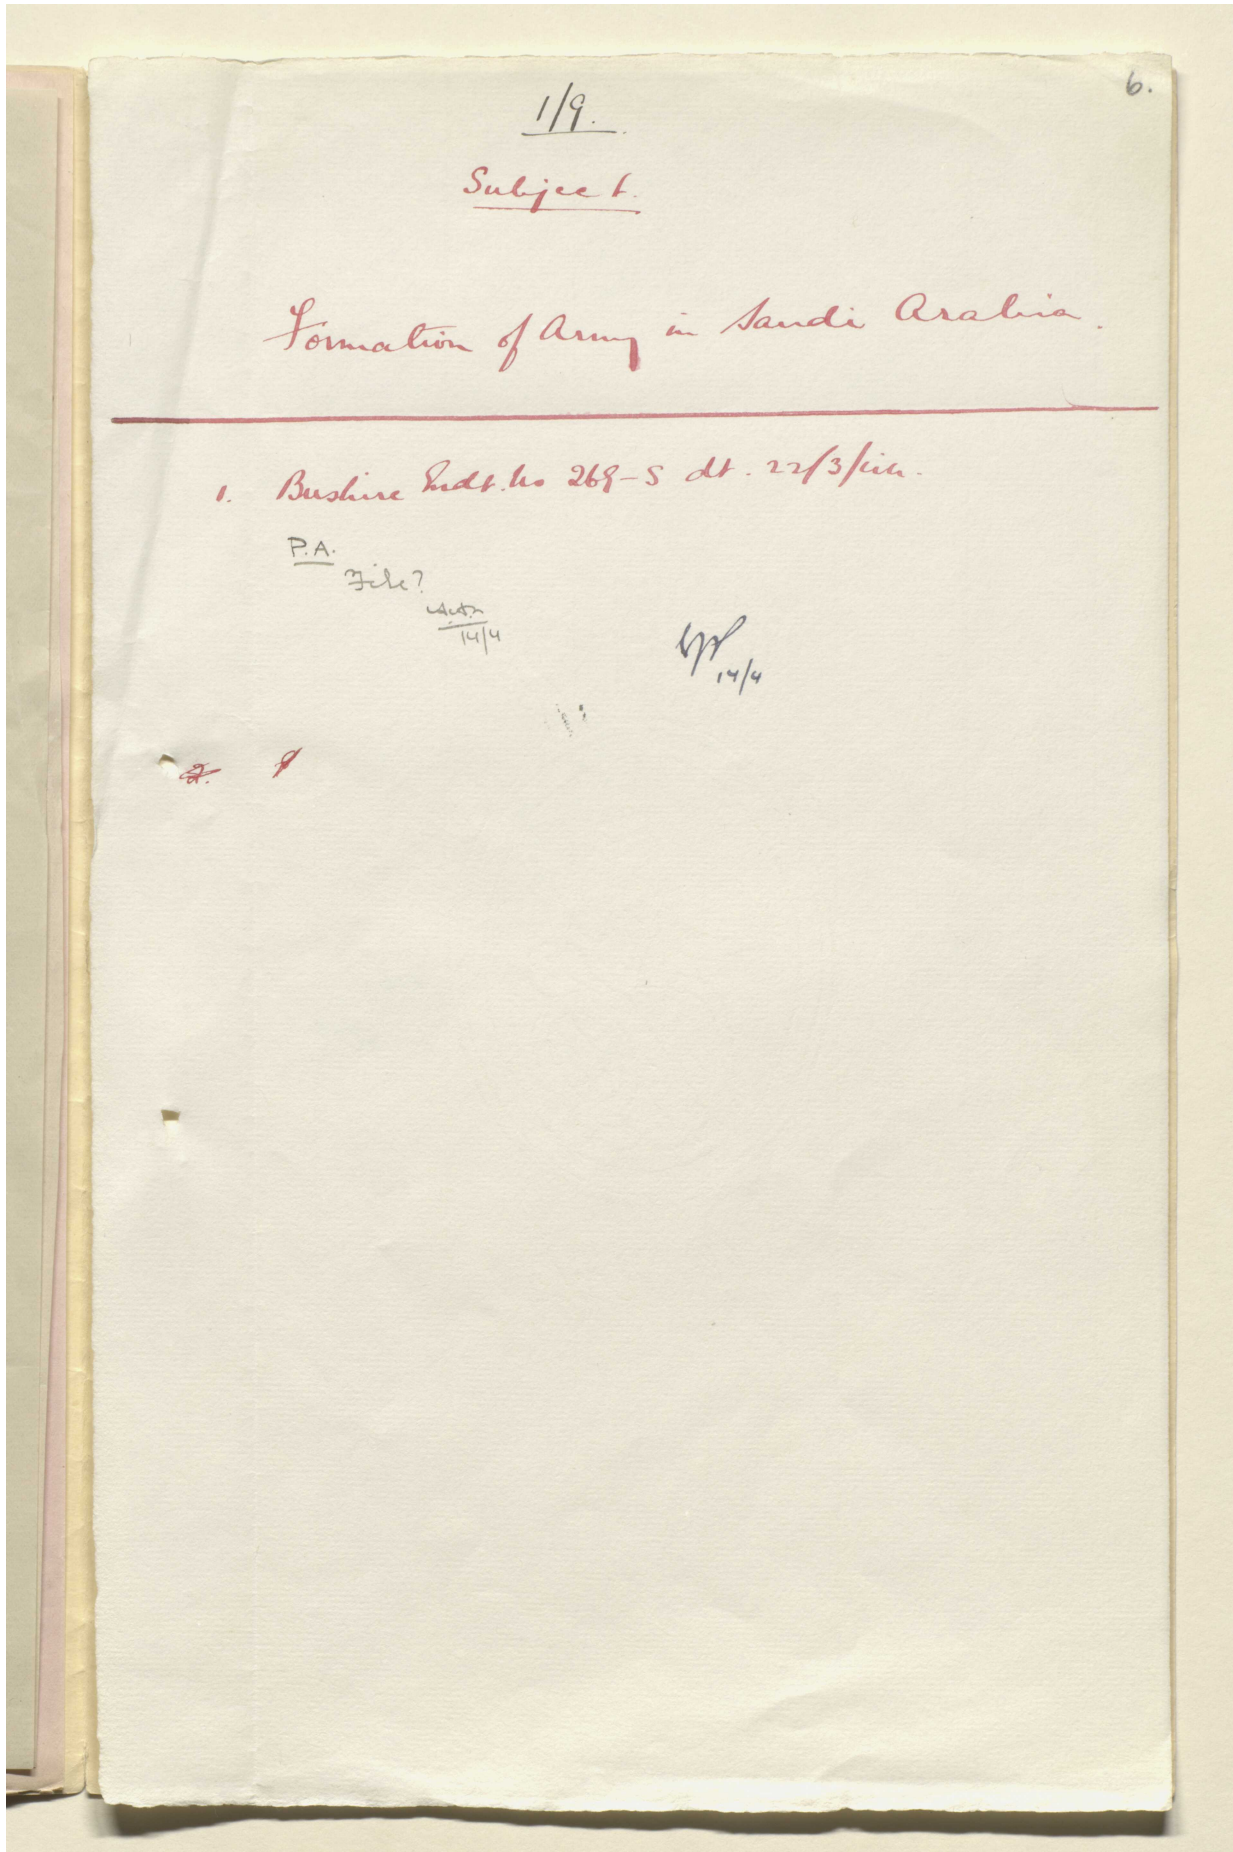 6.
1/9.
Subject.
Formation of Army in Saudi Arabia.
1. Bushire Endt. No 269-S dt. 22/3/
P.A.
File?
14/4
14/4
2.